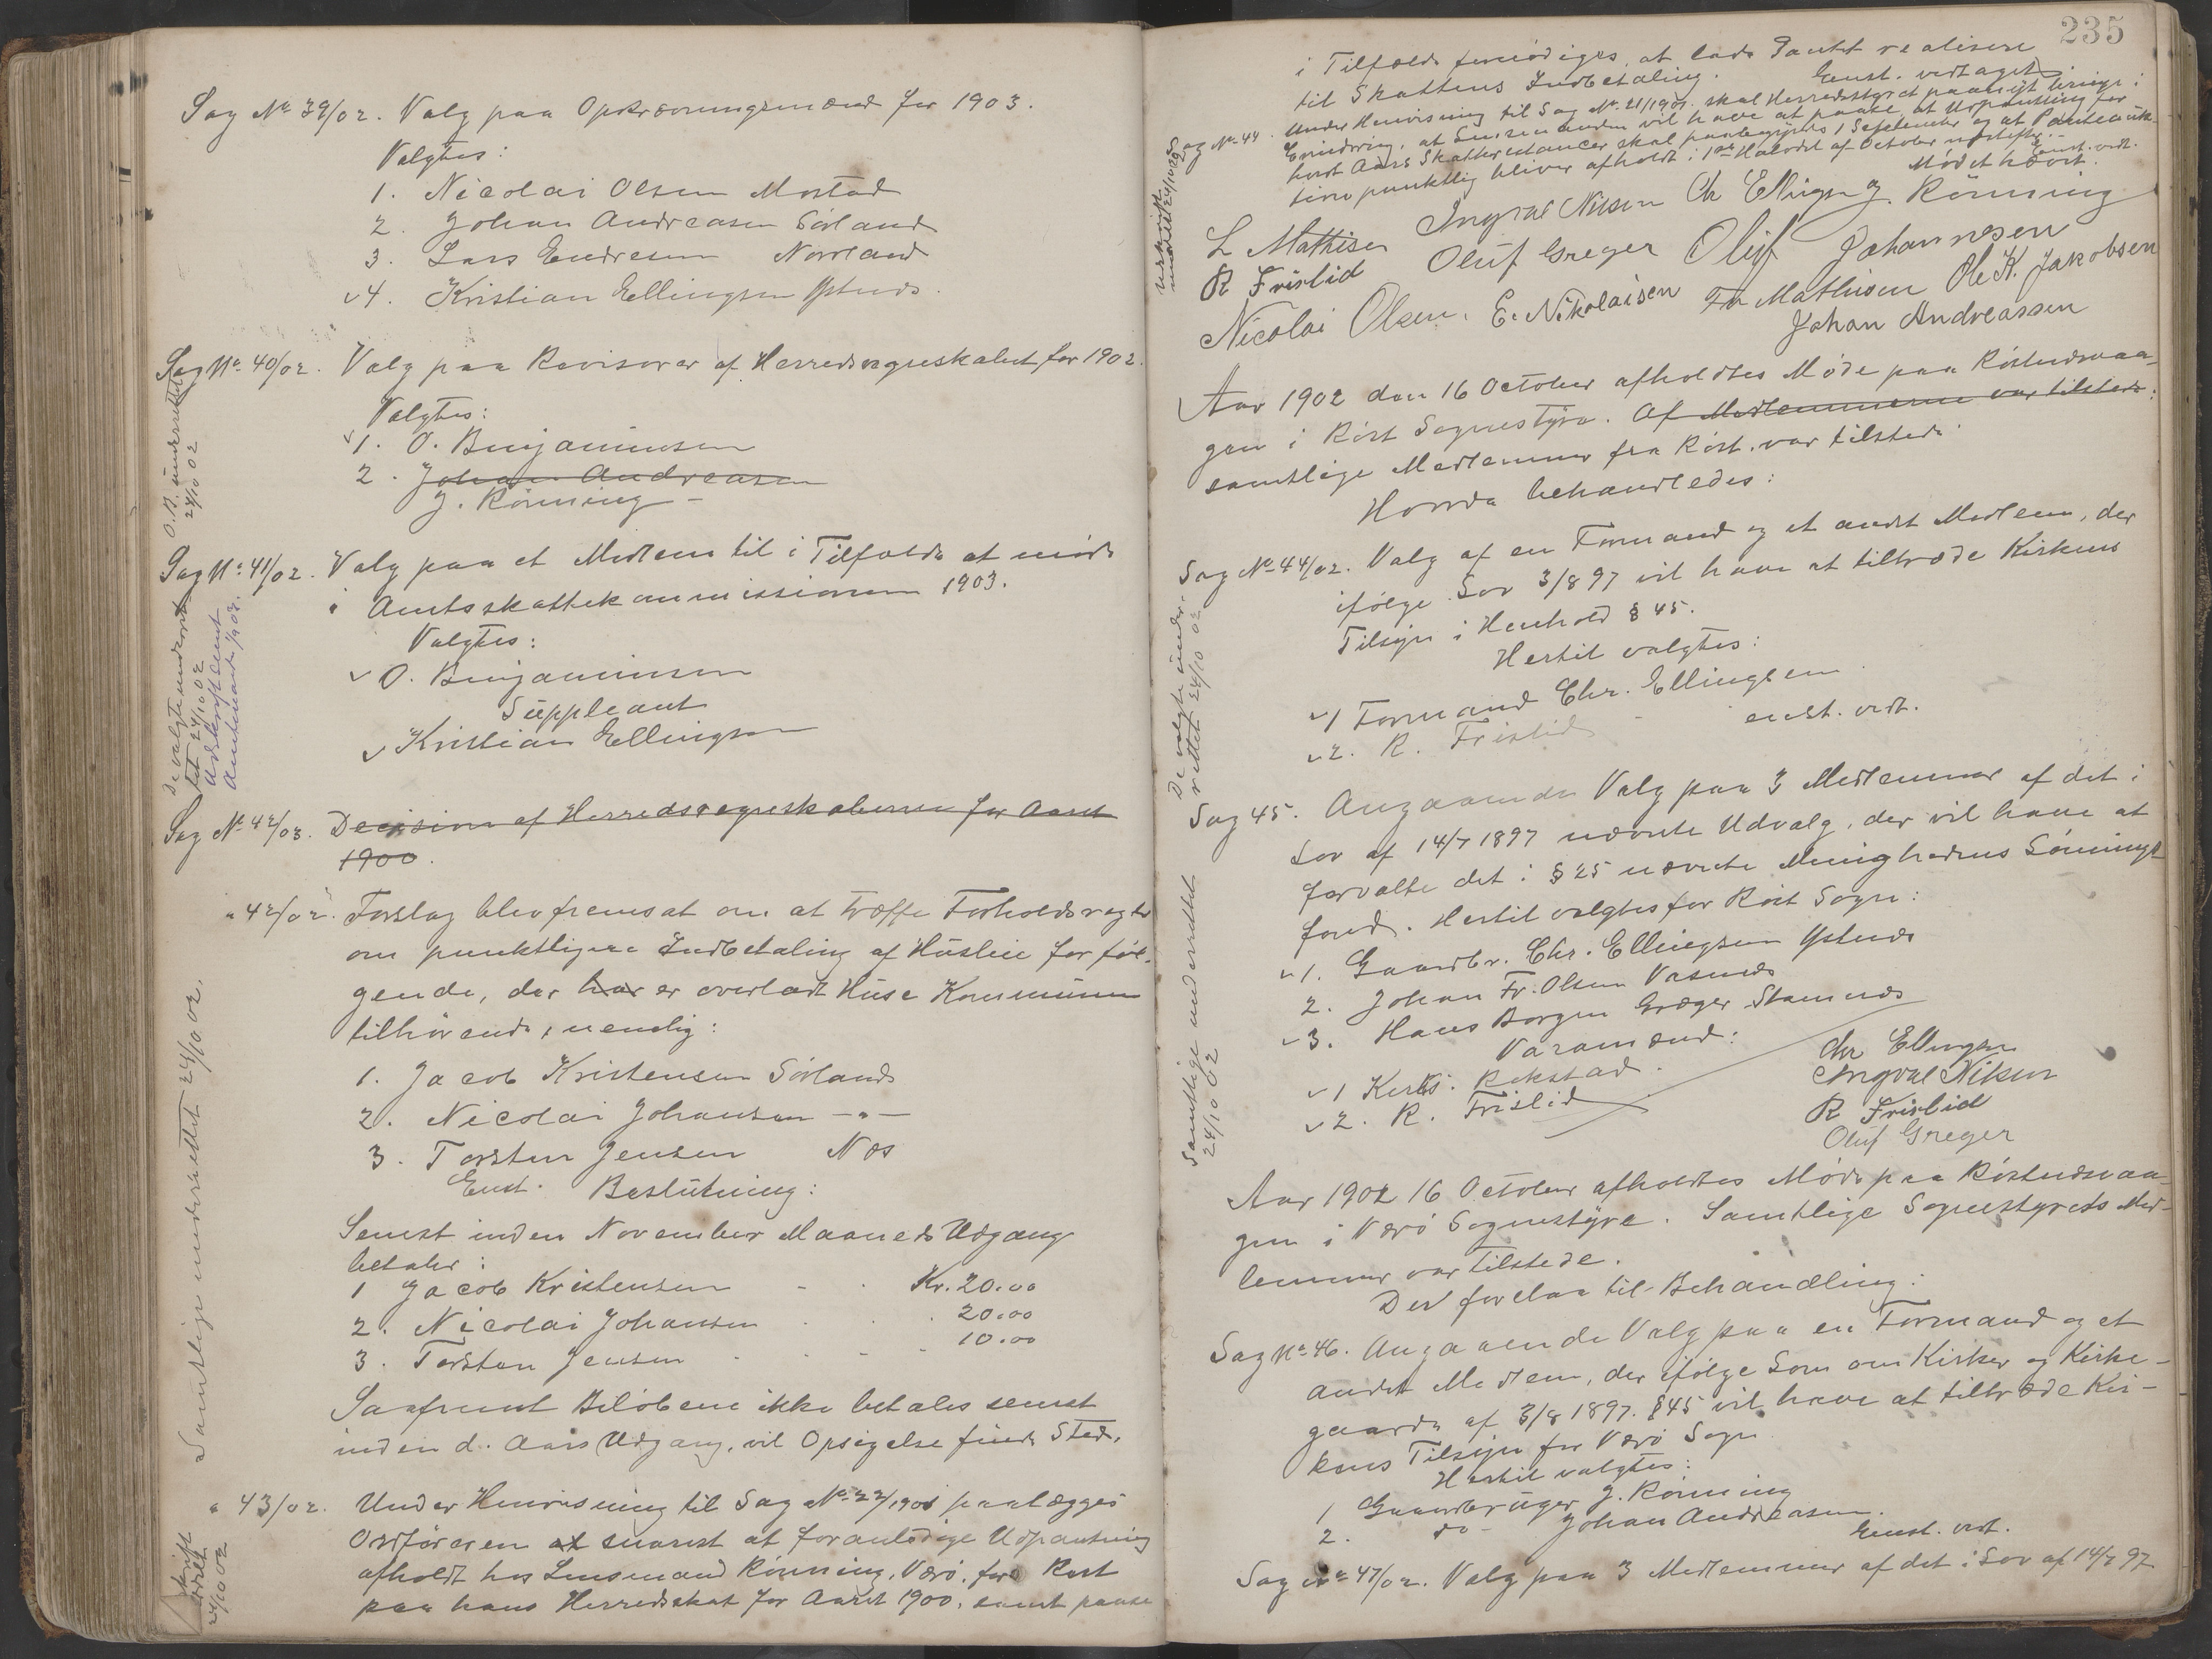 Sag No 39/02. Valg paa Opkrævningsmænd for 1903.
Valgtes:
1. Nicolai Olsen Mostad
2. Johan Andreasen Sörland
3. Lars Endresen Norland
4. Kristian Ellingsen Ystnes
Sag No 40/02. Valg paa Revisorer af Herredsregnskabet for 1902.
Valgtes:
1. O. Benjaminsen
2. Johan Andreasen
J. Rönning -
O. B. underrettet
24/10 02
Sag No 41/02. Valg paa et Medlem til i Tilfælde at möde
i Amtsskattekommissionen 1903.
Valgtes:
O. Benjaminsen
Suppleant
Kristian Ellingsen
De valgte underret
tet 24/10 02
Udskrift sendt
Amtmanden
Sag No 42/02. Decision af Herredsregnskaberne for Aaret
1900.
" 42/02. Forslag blev fremsat om at træffe Forholdsregler
om punktligere Indbetaling af Husleie for föl-
gende, der har er overladt Huse Kommunen
tilhörende, nemlig:
1. Jacob Kristensen Sörland
2. Nicolai Johansen —"—
3. Torsten Jensen Næs
Enst. Beslutning:
Senest inden November Maaneds Udgang
betaler:
1 Jacob Kristensen - . Kr. 20.00
2. Nicolai Johansen . . . 20.00
3. Torsten Jensen . - - . 10.00
Saafremt Belöbene ikke betales senest
inden d. Aars Udgang, vil Opsigelse finde Sted.
Samtlige underrettet 24/10 02.
" 43/02. Under Henvisning til Sag No 22/1901 paalægges
Ordföreren at snarest at foranledige Udpantning
afholdt hos Lensmand Rönning, Værö, for Rest
paa hans Herredsskat for Aaret 1900, samt paase
24/10 02
235
i Tilfælde fornödiges, at lade Pantet realisere
til Skattens Indbetaling. Enst. vedtaget.
Sag No 44. Under Henvisning til Sag No 21/1901 skal Herredsstyret paanyt bringe i
Erindring, at Lensmanden vil have at paase, at Udpantning for
hvert Aars Skatterestancer skal paabegyndes 1 September og at Panteauk-
tion punktlig bliver afholdt i 1ste Halvdel af October næstefter. Enst. vedt.
Mödet hævet.
L Mathisen Ingval Nilsen Chr Ellingsen J. Rönning
R Fristid Oluf Greger Oluf Johannesen
Nicolai Olsen. E. Nikolaisen Fr Mathisen Ole K. Jakobsen
Johan Andreassen
Aar 1902 den 16 October afholdtes Möde paa Röstnesvaa-
gen i Röst Sognestyre. Af Medlemmerne var tilstede:
samtlige Medlemmer fra Röst var tilstede
Hvorda behandledes:
Sag No 44/02. Valg af en Formand og et andet Medlem, der
ifölge Lov 3/8 97 vil have at tiltræde Kirkens
Tilsyn i Henhold § 45.
Hertil valgtes:
1 Formand Chr. Ellingsen
2. R. Fristid - enst. vedt.
De valgte under-
rettet 24/10 02
Sag 45. Angaaende Valg paa 3 Medlemmer af det i
Lov af 14/7 1897 nævnte Udvalg, der vil have at
forvalte det i § 25 nævnte Menighedens Lönnings
fond. Hertil valgtes for Röst Sogn:
1. Gaardbr. Chr. Ellingsen Ystnes
2. Johan Fr. Olsen Vasnes
3. Hans Borgen Græger Stamnes
Varamænd:
1 Kerts. Rekstad.
2. R. Fristid
Samtlige underrettet
24/10 02
Chr Ellingsen
Ingval Nilsen
R Fristid
Oluf Greger
Aar 1902 16 October afholdtes Möde paa Röstnesvaa-
gen i Værö Sognestyre. Samtlige Sognestyrets Med-
lemmer var tilstede.
Der forelaa til Behandling:
Sag No 46. Angaaende Valg paa en Formand og et
andet Medlem, der ifölge Lov om Kirker og Kirke-
gaarde af 3/8 1897. § 45 vil have at tiltræde Kir-
kens Tilsyn for Værö Sogn
Hertil valgtes:
1 Gaardbruger J. Rönning
2. do - Johan Andreasen.
Enst. vedt.
Sag No 47/02. Valg paa 3 Medlemmer af det i Lov af 14/7 97